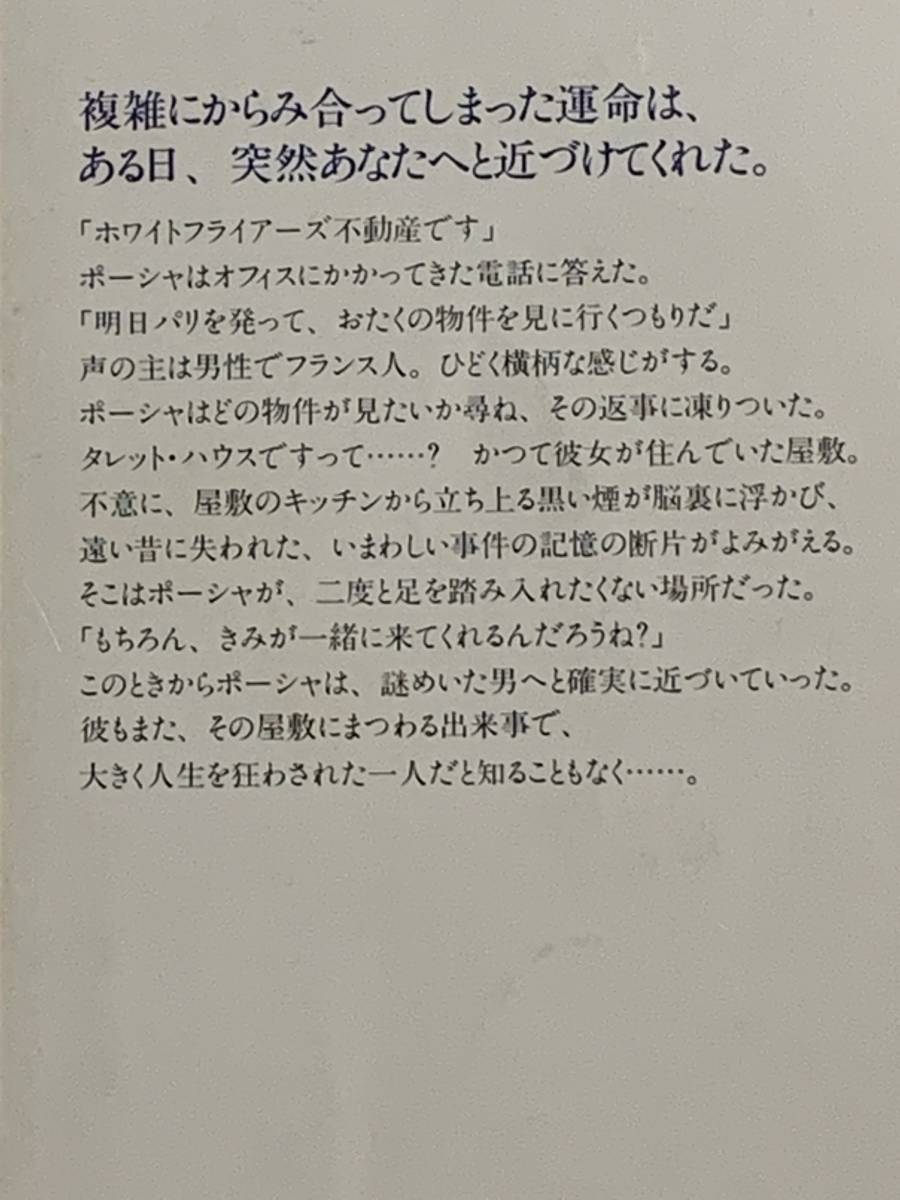 複雑にからみ合ってしまった運命は、
ある日、突然あなたへと近づけてくれた。
「ホワイトフライアーズ不動産です」
ポーシャはオフィスにかかってきた電話に答えた。
「明日パリを発って、おたくの物件を見に行くつもりだ」
声の主は男性でフランス人。ひどく横柄な感じがする。
ポーシャはどの物件が見たいか尋ね、その返事に凍りついた。
タレット・ハウスですって……？　かつて彼女が住んでいた屋敷。
不意に、屋敷のキッチンから立ち上る黒い煙が脳裏に浮かび、
遠い昔に失われた、いまわしい事件の記憶の断片がよみがえる。
そこはポーシャが、二度と足を踏み入れたくない場所だった。
「もちろん、きみが一緒に来てくれるんだろうね？」
このときからポーシャは、謎めいた男へと確実に近づいていった。
彼もまた、その屋敷にまつわる出来事で、
大きく人生を狂わされた一人だと知ることもなく……。